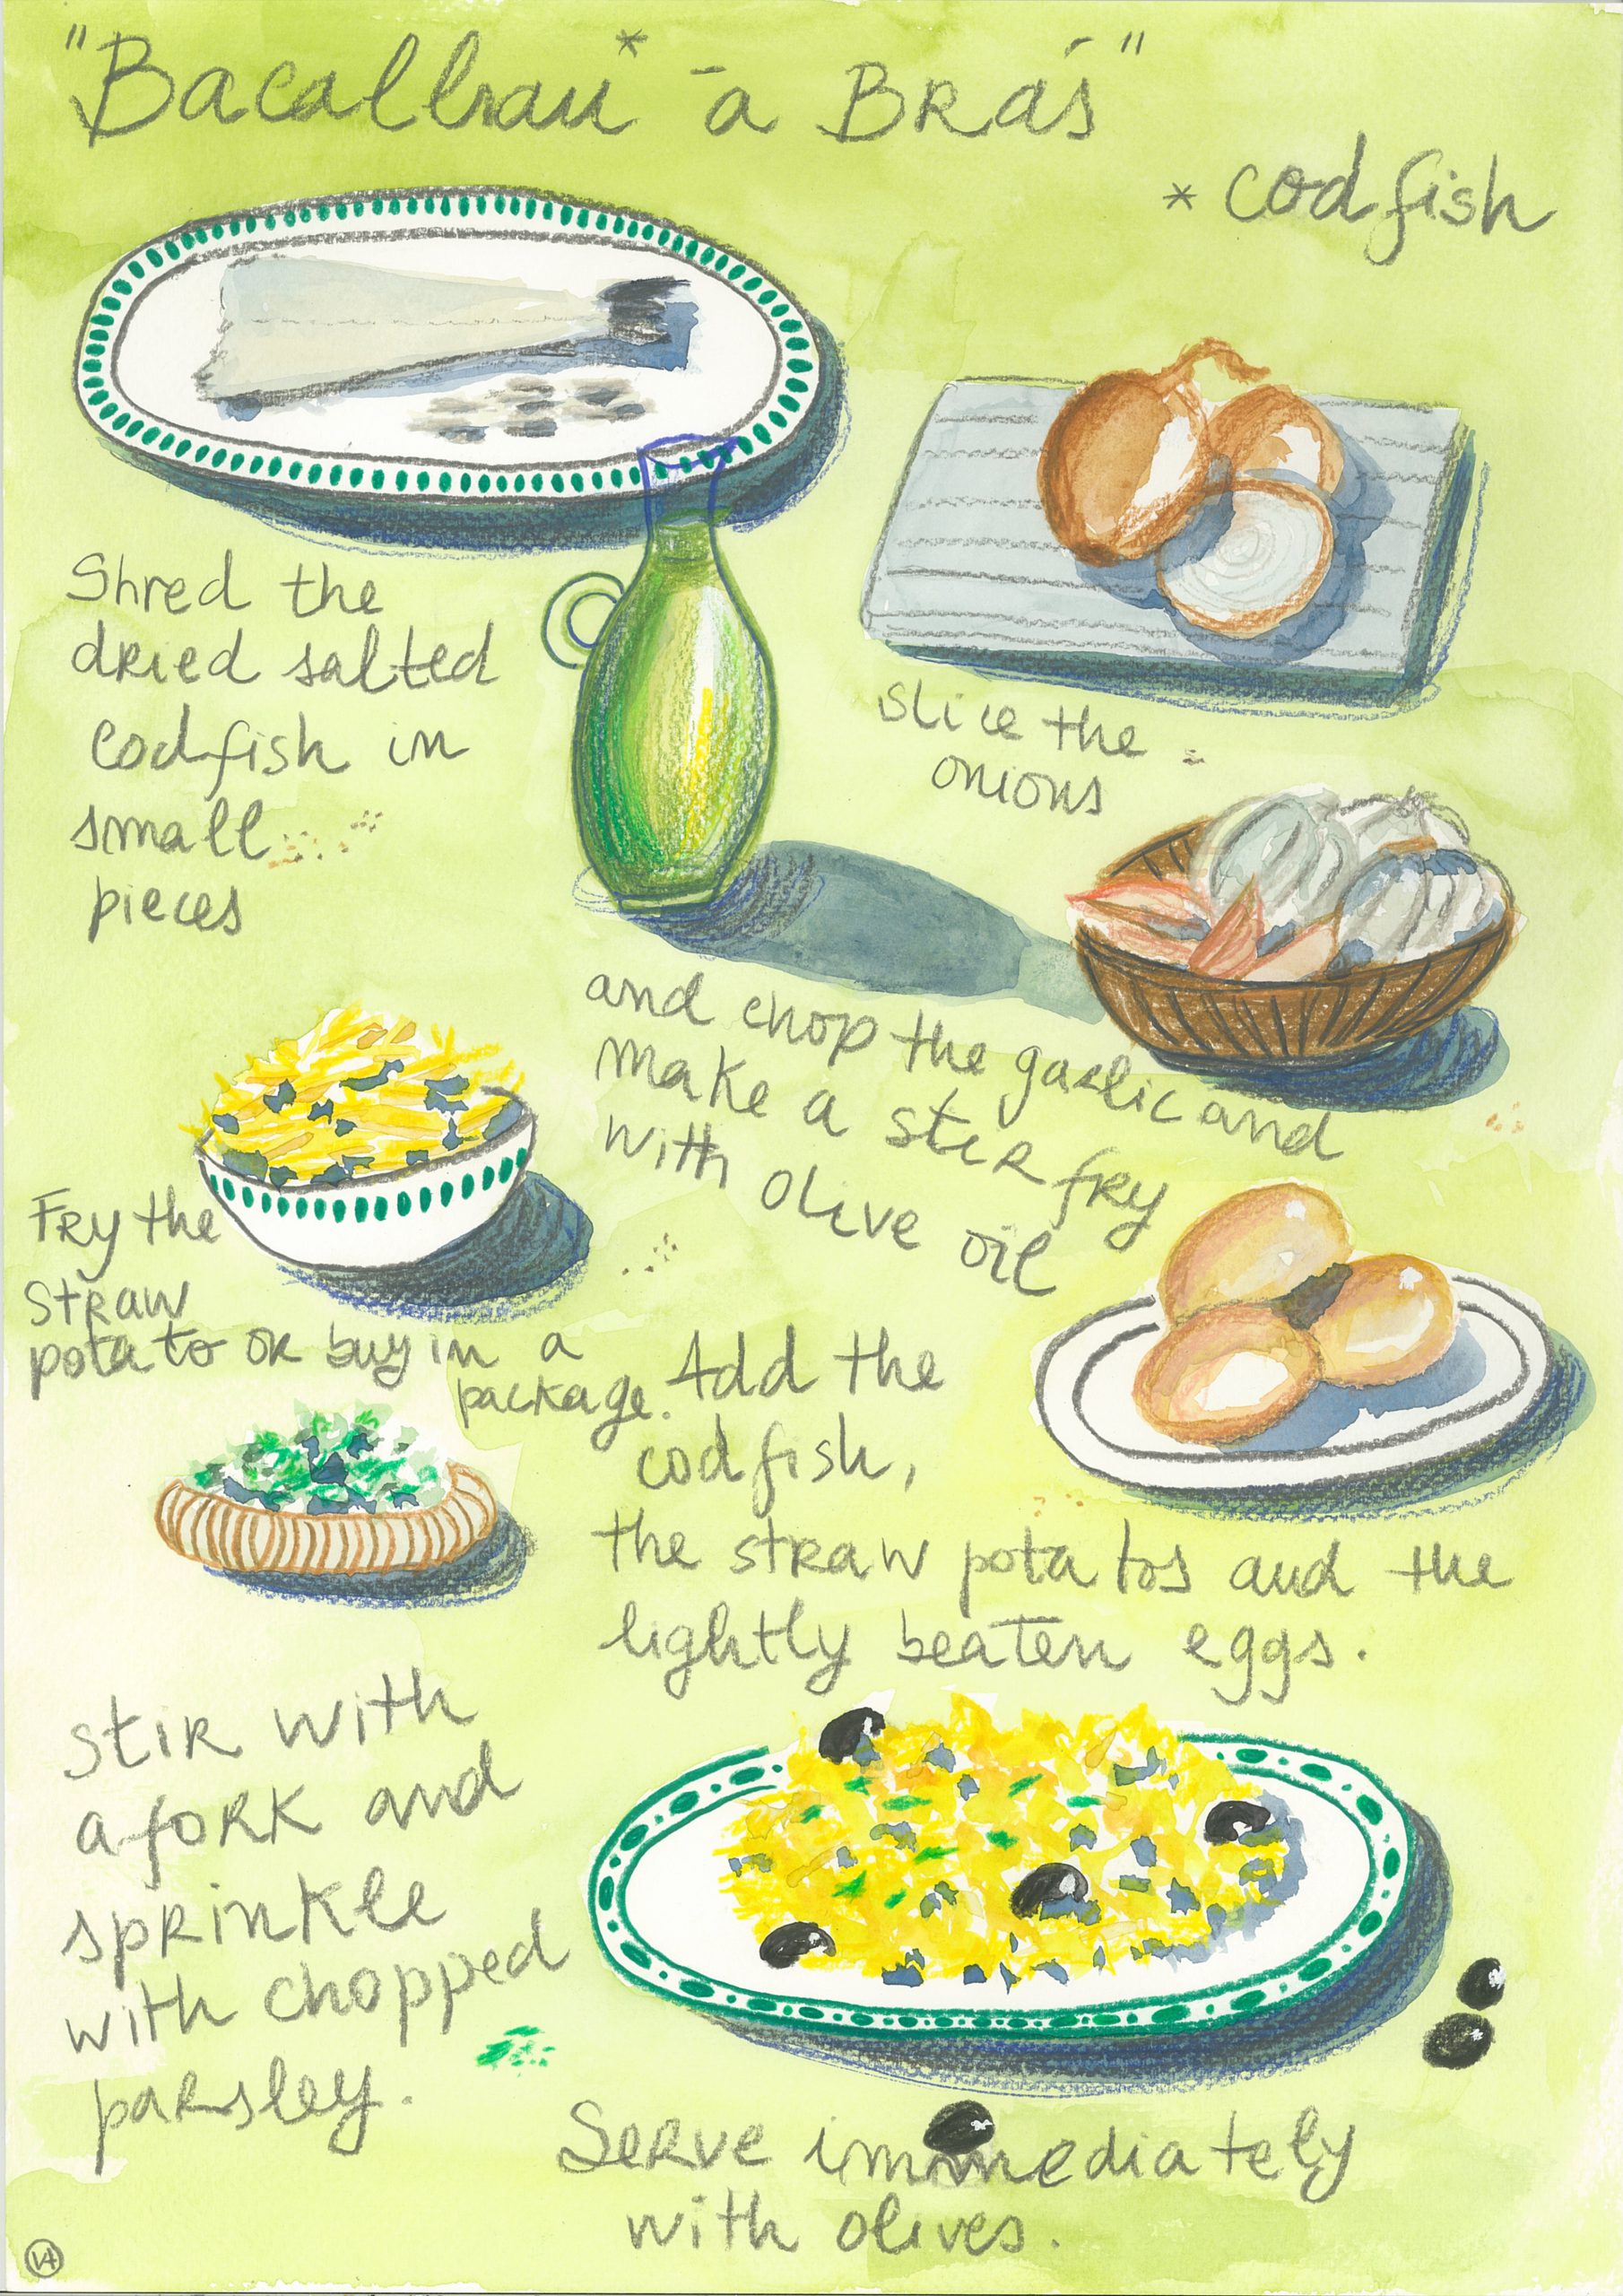 "Bacalhau* à Brás"
* codfish
Shred the
dried salted
codfish in
small
pieces
slice the
onions
and chop the garlic and
make a stir fry
with olive oil
Fry the
straw
potato or buy in a
package.
Add the
codfish,
the straw potatos and the
lightly beaten eggs.
stir with
a fork and
sprinkle
with chopped
parsley.
Serve immediately
with olives.